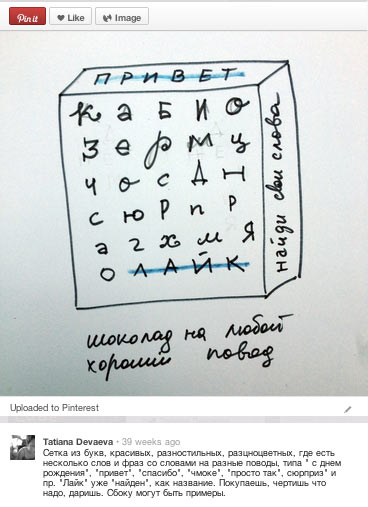 Pin it Like Image
ПРИВЕТ
К а Б И О
З е р м ц
ч о с Д Н
с ю Р п Р
а г х м Я
О Л А Й К
найди свои слова
шоколад на любой
хороший повод
Uploaded to Pinterest
Tatiana Devaeva • 39 weeks ago
Сетка из букв, красивых, разностильных, разцноцветных, где есть
несколько слов и фраз со словами на разные поводы, типа " с днем
рождения", "привет", "спасибо", "чмоке", "просто так", сюрприз" и
пр. "Лайк" уже "найден", как название. Покупаешь, чертишь что
надо, даришь. Сбоку могут быть примеры.